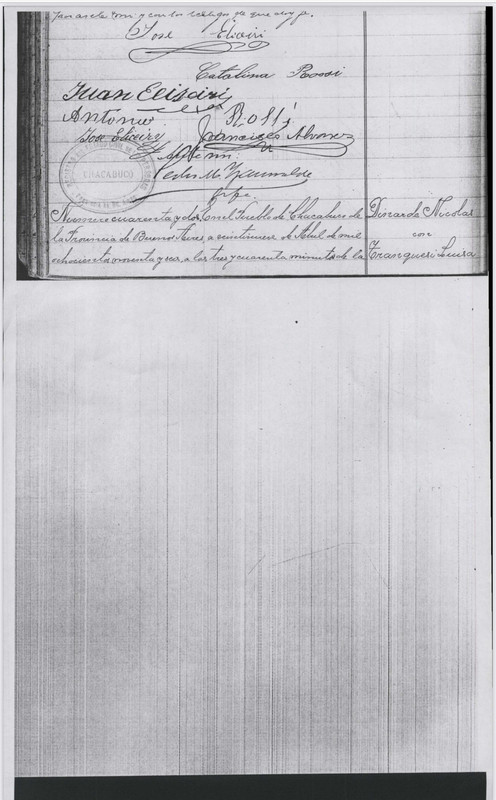 para esta con y con los testigos de que doy fe.
José Eliceiri
Catalina Rossi
Juan Elisairi
Antonio Rossi
Jose Eliceiry Francisco Alvarez
CHACABUCO
Pedro M.
Jefe.
Número cuarenta y dos. En el Pueblo de Chacabuco de
la Provincia de Buenos Aires, a veintinueve de Abril de mil
ochocientos noventa y seis, a las tres y cuarenta minutos de la
Dinarda Nicolas
con
Tranqueri Luisa